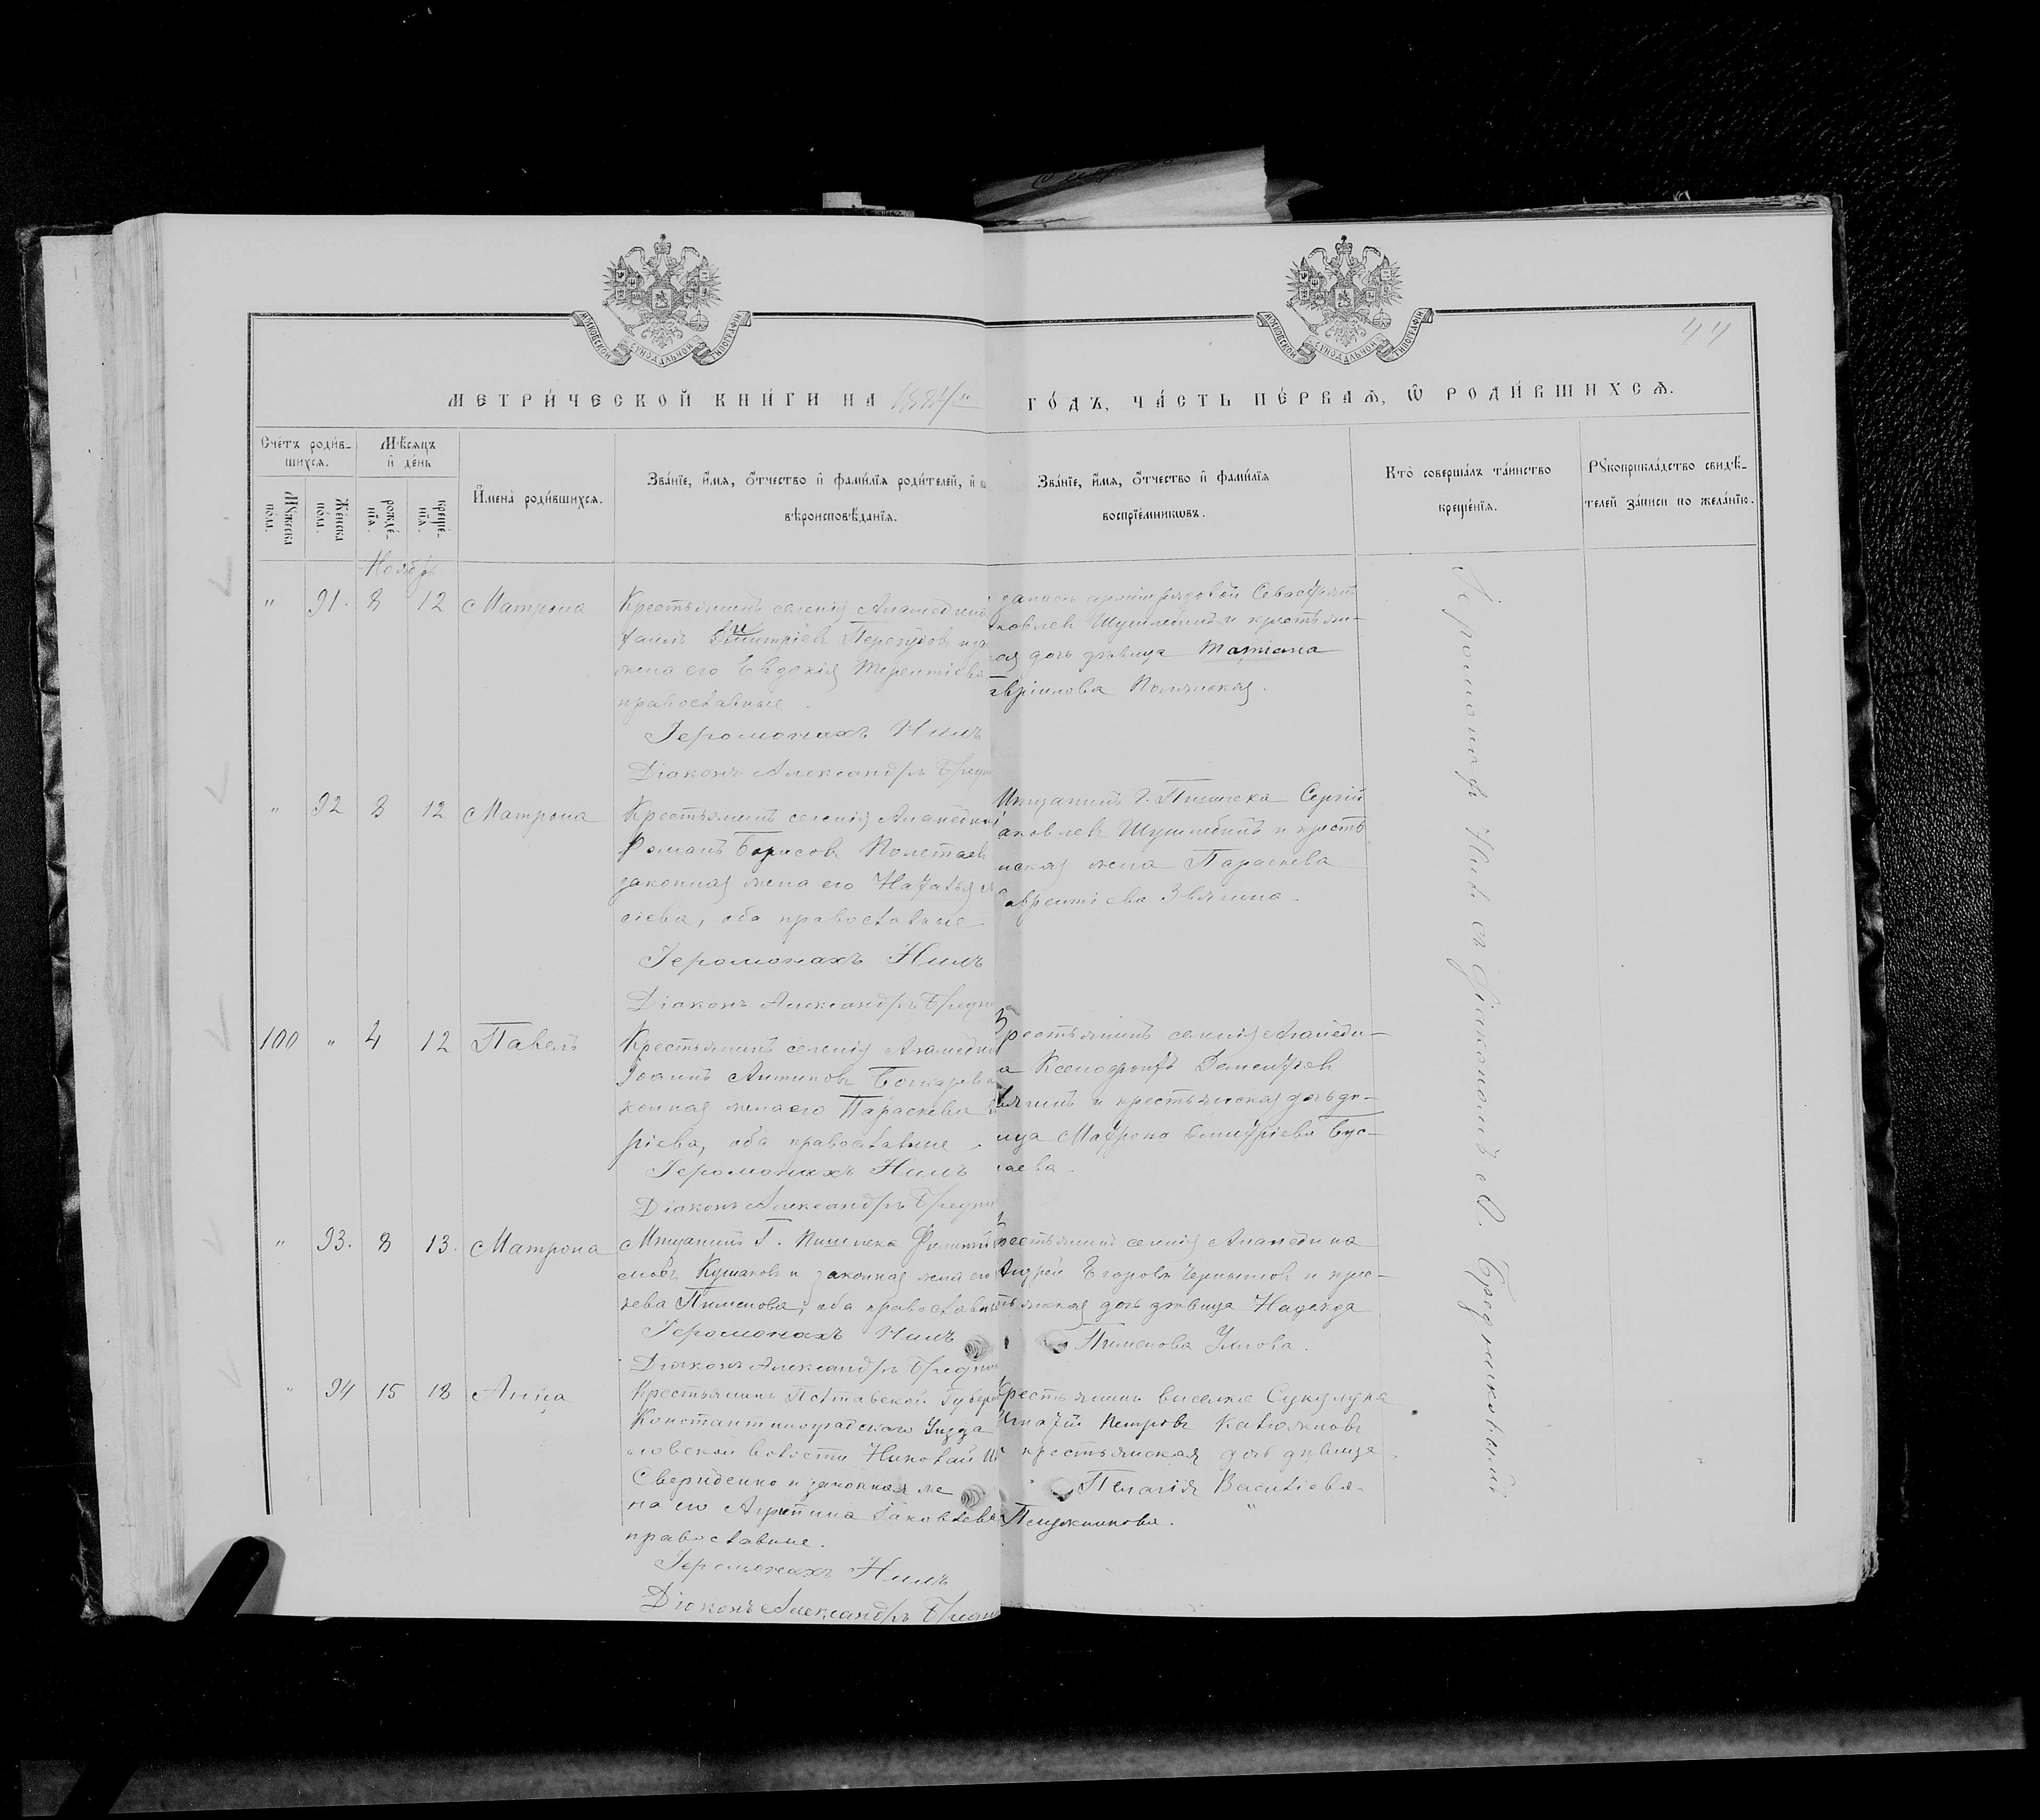 44
МЕТРИ́ЧЕСКОЙ КНИ́ГИ НА 1884/й ГО́ДЪ, ЧА́СТЬ ПЕ́РВАѦ, Ѡ҆ РОДИ́ВШИХСѦ.
Сче́тъ роди́в-
шихсѧ.
Мꙋ́жеска по́ла.
Же́нска по́ла.
Мѣ́сѧцъ
и҆ де́нь
рожде́-
нїѧ.
креще́-
нїѧ.
И҆мена̀ роди́вшихсѧ.
Зва́нїе, и҆́мѧ, ѻ҆́тчество и҆ фами́лїѧ роди́телей, и҆
вѣроисповѣ́данїѧ.
Зва́нїе, и҆́мѧ, ѻ҆́тчество и҆ фами́лїѧ
воспрїе́мникѡвъ.
Кто̀ соверша́лъ та́инство
креще́нїѧ.
Рꙋкоприкла́дство свидѣ́-
телей за́писи по жела́нїю.
Ноябрь
" 91. 8 12 Матрона
Крестьянинъ селенія Аламедина
Димитріевъ Перегудовъ
жена его Евдокія Терентіева
православные.
Іеромонахъ Нилъ
Діаконъ Александръ Бредни
запаса арміи рядовой Севастьянъ
аковлевъ Шушлебинъ и крестьян-
ая дочь дѣвица Татіана
авріилова Полянская.
" 92 8 12 Матрона
Крестьянинъ селенія Аламедина
Романъ Борисовъ Полетаевъ
законная жена его Наталья
сіева, оба православные.
Іеромонахъ Нилъ
Діаконъ Александръ Бредни
Мѣщанинъ г. Пишпека Сергій
аковлевъ Шушлебинъ и кресть
нская жена Параскева
аврентіева Звягина.
100 " 4 12 Павелъ
Крестьянинъ селенія Аламедина
Іоаннъ Антиповъ Бочкаревъ
конная жена его Параскева
ріева, оба православные.
Іеромонахъ Нилъ
Діаконъ Александръ Бредни
Крестьянинъ селенія Аламеди-
а Ксенофонтъ Дементьевъ
вягинъ и крестьянская дочь дѣ-
ица Матрона Димитріева Бус-
лаева.
" 93. 8 13. Матрона
Мѣщанинъ Г. Пишпека
Кушаковъ и законная жена его
Пименова, оба православные
Іеромонахъ Нилъ
Діаконъ Александръ Бредни
рестьянинъ селенія Аламедина
Андрей Егоровъ и крес-
тьянская дочь дѣвица Надежда
Пименова
" 94 15 18 Анна
Крестьянинъ Полтавской Губерн
Константиноградскаго Уѣзда
ловской волости Николай
Свериденко и законная же
на его Агрипина Іаковлева
православные.
Іеромонахъ Нилъ
Діаконъ Александръ Бредни
Крестьянинъ выселка Сукулука
Игнатій Петровъ
крестьянская дочь дѣвица
Пелагія Василіева
Іеромонахъ Нилъ съ Діакономъ А. Бредниковымъ